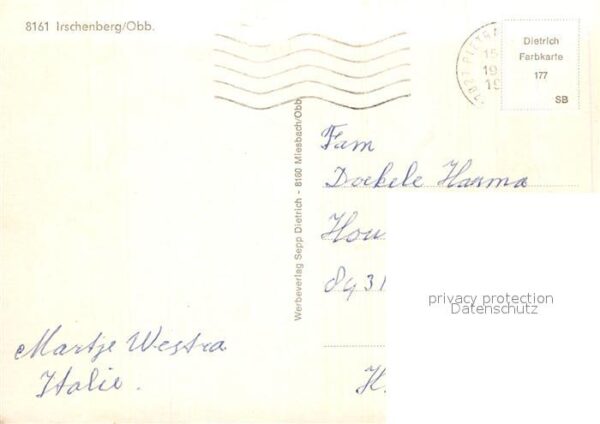 8161 Irschenberg/Obb.
Dietrich
Farbkarte
177
SB
Werbeverlag Sepp Dietrich - 8160 Miesbach/Obb
Fam
Doekele Haarma
Hou
8931
privacy protection
Datenschutz
Martje Westra
Italie.
H.